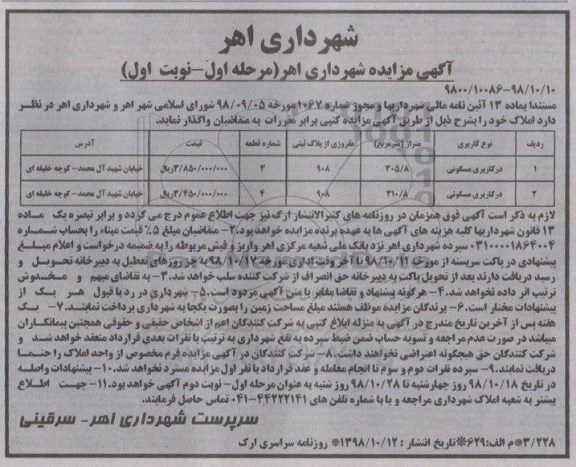 شهرداری اهر
آگهی مزایده شهرداری اهر(مرحله اول–نوبت اول)
۹۸۰۰/۱۰۰۸۶–۹۸/۱۰/۱۰
مستندا بماده ۱۳ آئین نامه مالی شهرداریها و مجوز شماره ۱۰۶۷ مورخه ۹۸/۰۹/۰۵ شورای اسلامی شهر اهر و شهرداری اهر در نظر
دارد املاک خود را بشرح ذیل از طریق آگهی مزایده کتبی برابر مقررات به متقاضیان واگذار نماید.
ردیف نوع کاربری متراژ (مترمربع) مفروزی از پلاک ثبتی شماره قطعه قیمت آدرس
۱ درکاربری مسکونی ۳۰۵/۸ ۹۰۸ ۳ ۳/۸۵۰/۰۰۰/۰۰۰ریال خیابان شهید آل محمد–کوچه خلیفه ای
۲ درکاربری مسکونی ۳۱۰/۸ ۹۰۸ ۴ ۳/۴۵۰/۰۰۰/۰۰۰ریال خیابان شهید آل محمد–کوچه خلیفه ای
لازم به ذکر است آگهی فوق همزمان در روزنامه های کثیرالانتشار ارک نیز جهت اطلاع عموم درج می گردد و برابر تبصره یک ماده
۱۳ قانون شهرداریها کلیه هزینه های آگهی ها به عهده برنده مزایده خواهد بود.۲– متقاضیان مبلغ ۵٪ قیمت میناء را بحساب شماره
۰۳۱۰۰۰۰۱۸۶۴۰۰۴ سپرده شهرداری اهر نزد بانک ملی شعبه مرکزی اهر واریز و فیش مربوطه را به ضمیمه درخواست و اعلام مبلغ
پیشنهادی در پاکت سربسته از مورخه ۹۸/۱۰/۱۱ تا آخر وقت اداری مورخه ۹۸/۱۰/۱۷ به جز روزهای تعطیل به دبیرخانه تحویل و
رسید دریافت دارند بعد از تحویل پاکت به دبیرخانه حق انصراف از شرکت کننده سلب خواهد شد.۳– به تقاضای مبهم و مخدوش
ترتیب اثر داده نخواهد شد.۴– هرگونه پیشنهاد و تقاضا مغایر با متن آگهی مردود است.۵– شهرداری در رد یا قبول هر یک از
پیشنهادات مختار است.۶– برندگان مزایده موظف هستند مبلغ مساحت زمین را بصورت یکجا به شهرداری پرداخت نمایند.۷– یک
هفته پس از آخرین تاریخ مندرج در آگهی به منزله ابلاغ کتبی به شرکت کنندگان اعم از اشخاص حقیقی و حقوقی همچنین پیمانکاران
میباشد در صورت عدم مراجعه و تسویه حساب ضمن ضبط سپرده به نفع شهرداری به ترتیب با نفرات بعدی قرارداد منعقد خواهد شد و
شرکت کنندگان حق هیچگونه اعتراضی نخواهند داشت.۸– شرکت کنندگان در آگهی مزایده فرم مخصوص از واحد املاک را حتما
دریافت نمایند.۹– سپرده نفرات دوم و سوم تا انجام معامله و عقد قرارداد با نفر اول مزایده مسترد نخواهد شد.۱۰– پیشنهادات واصله
در تاریخ ۹۸/۱۰/۱۸ روز چهارشنبه تا ۹۸/۱۰/۲۸ روز شنبه به عنوان مرحله اول– نوبت دوم آگهی خواهد بود.۱۱– جهت اطلاع
بیشتر به شعبه املاک شهرداری مراجعه و یا با شماره تلفن های ۴۴۲۲۲۱۴۱–۰۴۱ تماس حاصل فرمایند.
سرپرست شهرداری اهر– سرقینی
۳/۲۲۸*م الف:۶۲۹*تاریخ انتشار : ۱۳۹۸/۱۰/۱۲* روزنامه سراسری ارک